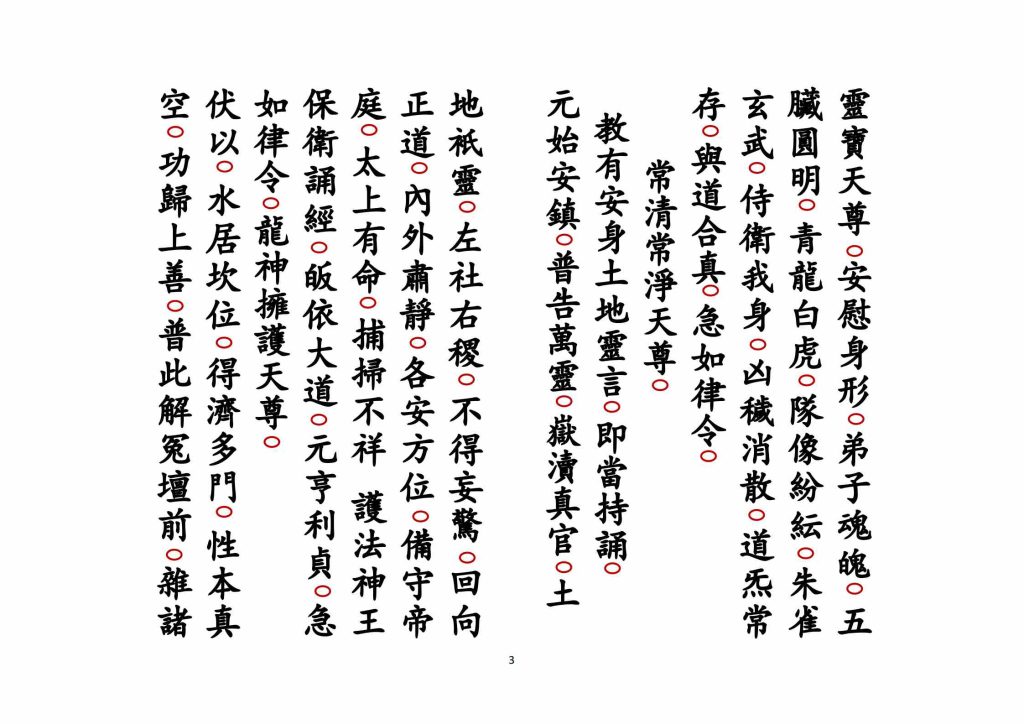 靈寶天尊○安慰身形○弟子魂魄○五
臟圓明○青龍白虎○隊像紛紜○朱雀
玄武○侍衛我身○凶穢消散○道炁常
存○與道合真○急如律令○
常清常淨天尊○
教有安身土地靈言○即當持誦○
元始安鎮○普告萬靈○嶽瀆真官○土
地衹靈○左社右稷○不得妄驚○回向
正道○內外肅靜○各安方位○備守帝
庭○太上有命○捕掃不祥 護法神王
保衛誦經○皈依大道○元亨利貞○急
如律令○龍神擁護天尊○
伏以○水居坎位○得濟多門○性本真
空○功歸上善○普此解冤壇前○雜諸
3